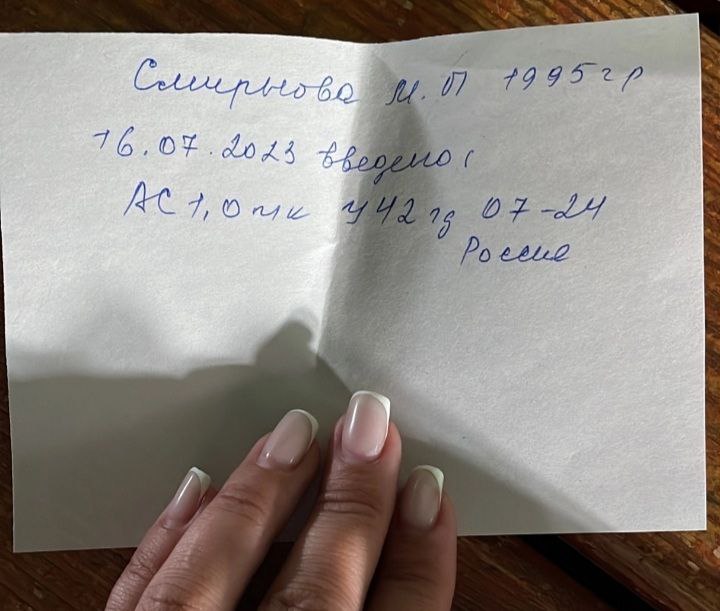 Смирнова М.П 1995г р
16.07.2023 введено
АС 1,0 п/к У42 гд 07-24
Россия